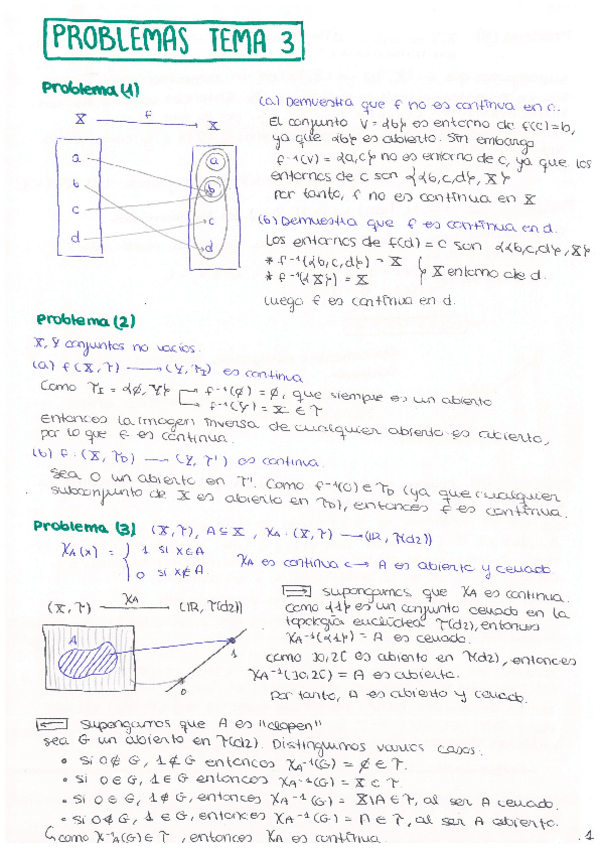 PROBLEMAS TEMA 3
Problema (1)
X f X
a
b
c
d
a
b
c
d
(a) Demuestra que f no es continua en c.
El conjunto V = {b} es entorno de f(c)=b,
ya que {b} es abierto. Sin embargo
f⁻¹(V) = {a,c} no es entorno de c, ya que los
entornos de c son {{b,c,d}, X}
Por tanto, f no es continua en X
(b) Demuestra que f es continua en d.
Los entornos de f(d) = c son {{b,c,d}, X}
* f⁻¹({b,c,d}) = X
* f⁻¹({X}) = X
X entorno de d.
Luego f es continua en d.
Problema (2)
X, Y conjuntos no vacíos.
(a) f (X, τ) → (Y, τI) es continua
Como τI = {∅, Y} f⁻¹(∅) = ∅, que siempre es un abierto
f⁻¹(Y) = X ∈ τ
Entonces la imagen inversa de cualquier abierto es abierto,
por lo que f es continua.
(b) f: (X, τD) → (Y, τ') es continua.
Sea O un abierto en τ'. Como f⁻¹(O) ∈ τD (ya que cualquier
subconjunto de X es abierto en τD), entonces f es continua.
Problema (3) (X, τ), A ⊆ X, χA: (X, τ) → (ℝ, τ(d2))
χA(x) = { 1 si x∈A
0 si x∉A.
χA es continua ↔ A es abierto y cerrado.
⇒ Supongamos que χA es continua.
Como {1} es un conjunto cerrado en la
topología euclídea τ(d2), entonces
χA⁻¹({1}) = A es cerrado.
Como ]0,2[ es abierto en τ(d2), entonces
χA⁻¹(]0,2[) = A es abierto.
Por tanto, A es abierto y cerrado.
(X, τ) χA (ℝ, τ(d2))
A
1
0
⇐ Supongamos que A es "clopen"
Sea G un abierto en τ(d2). Distinguimos varios casos.
• Si 0∉G, 1∉G entonces χA⁻¹(G) = ∅ ∈ τ.
• Si 0∈G, 1∈G entonces χA⁻¹(G) = X ∈ τ.
• Si 0∈G, 1∉G, entonces χA⁻¹(G) = X\A ∈ τ, al ser A cerrado.
• Si 0∉G, 1∈G, entonces χA⁻¹(G) = A ∈ τ, al ser A abierto.
Como χ⁻¹A(G) ∈ τ, entonces χA es continua.
1